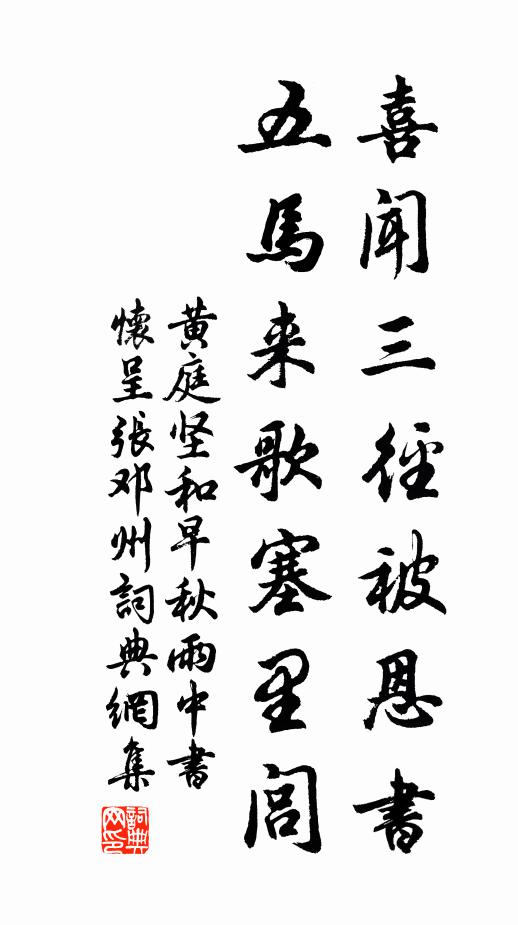 喜聞三徑被恩書
五馬来歌塞里閭
黃庭坚和早秋雨中書
懷呈張邓州詞典網集
詞典
网印